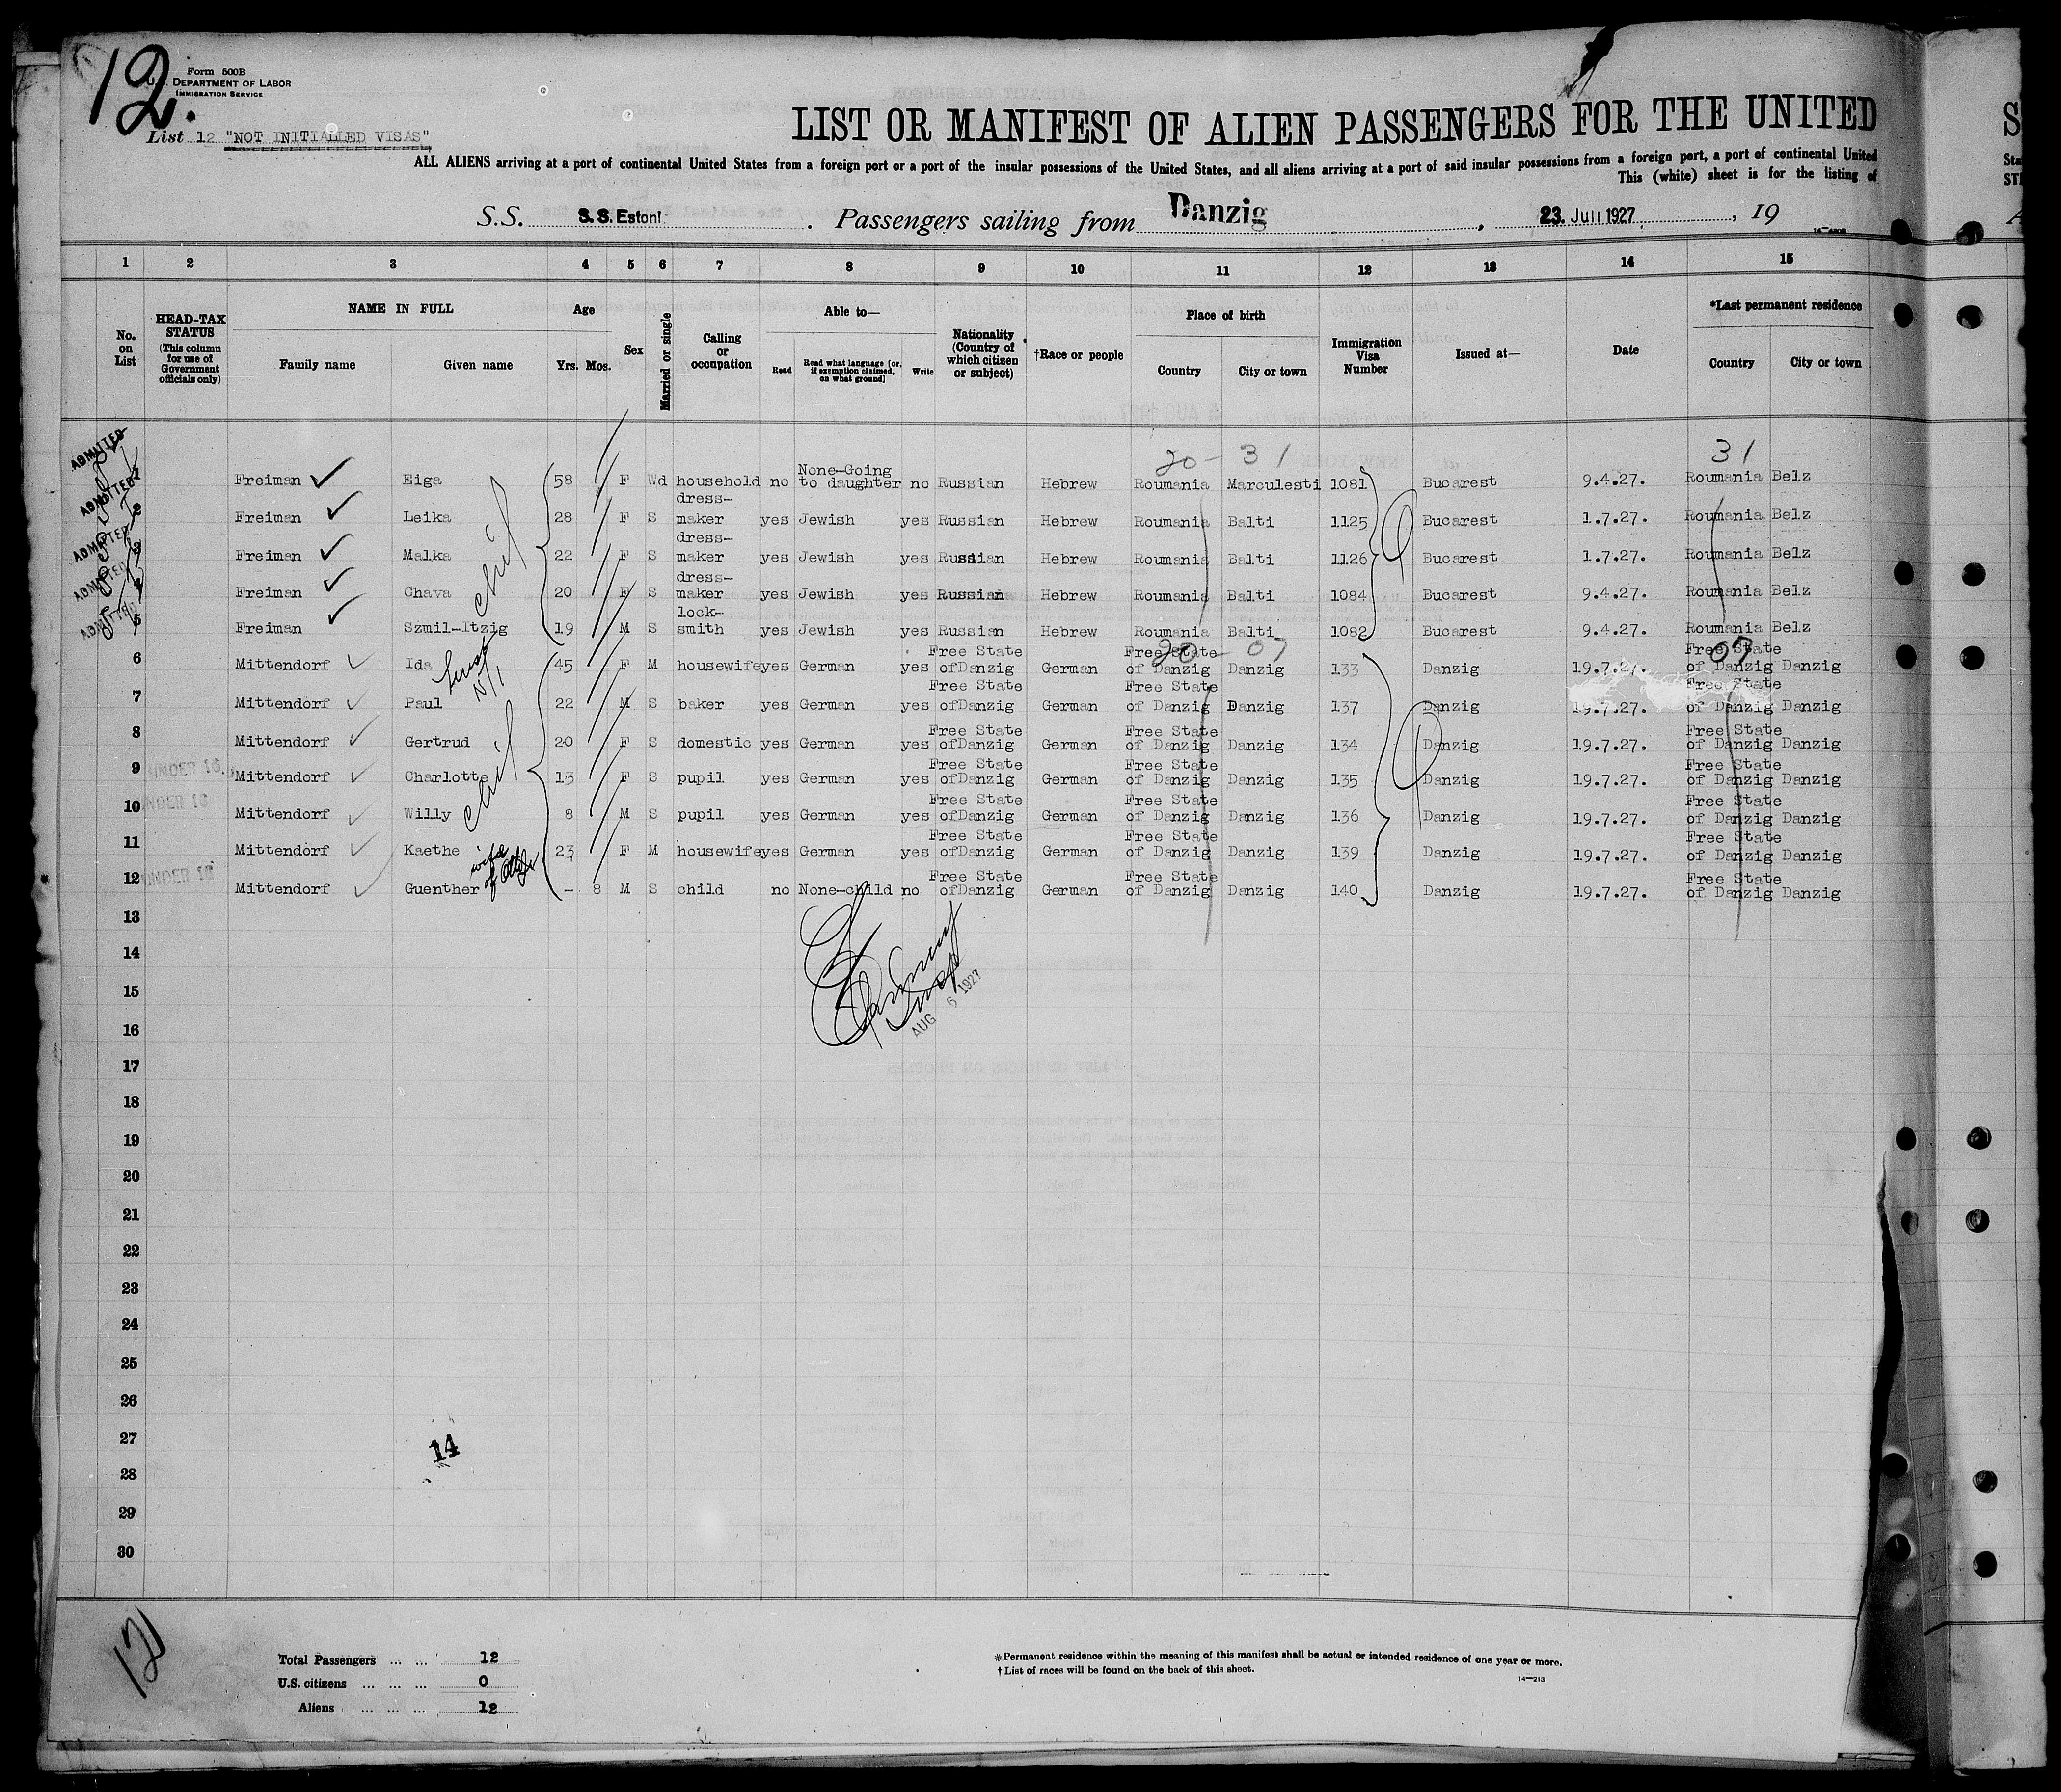 12.
Form 500B
U. S. DEPARTMENT OF LABOR
IMMIGRATION SERVICE
List 12 "NOT INITIALLED VISAS"
LIST OR MANIFEST OF ALIEN PASSENGERS FOR THE UNITED
ALL ALIENS arriving at a port of continental United States from a foreign port or a port of the insular possessions of the United States, and all aliens arriving at a port of said insular possessions from a foreign port, a port of continental United
This (white) sheet is for the listing of
S.S. S.S. Estoni. Passengers sailing from Danzig, 23. Juli 1927, 19
1 2 3 4 5 6 7 8 9 10 11 12 13 14 15
No. on List
HEAD-TAX STATUS (This column for use of Government officials only)
NAME IN FULL
Family name Given name
Age
Yrs. Mos.
Sex
Married or single
Calling or occupation
Able to—
Read
Read what language [or, if exemption claimed, on what ground]
Write
Nationality (Country of which citizen or subject)
†Race or people
Place of birth
Country City or town
Immigration Visa Number
Issued at—
Date
*Last permanent residence
Country City or town
20 - 31 31
ADMITTED 1 Freiman Eiga 58 F Wd household no None-Going to daughter no Russian Hebrew Roumania Marculesti 1081 Bucarest 9.4.27. Roumania Belz
ADMITTED 2 Freiman Leika 28 F S dress-maker yes Jewish yes Russian Hebrew Roumania Balti 1125 Bucarest 1.7.27. Roumania Belz
ADMITTED 3 Freiman Malka 22 F S dress-maker yes Jewish yes Russian Hebrew Roumania Balti 1126 Bucarest 1.7.27. Roumania Belz
ADMITTED 4 Freiman Chava 20 F S dress-maker yes Jewish yes Russian Hebrew Roumania Balti 1084 Bucarest 9.4.27. Roumania Belz
ADMITTED 5 Freiman Szmil-Itzig 19 M S lock-smith yes Jewish yes Russian Hebrew Roumania Balti 1082 Bucarest 9.4.27. Roumania Belz
20 - 07 07
6 Mittendorf Ida 45 F M housewife yes German yes Free State ofDanzig German Free State of Danzig Danzig 133 Danzig 19.7.27. Free State of Danzig Danzig
7 Mittendorf Paul 22 M S baker yes German yes Free State ofDanzig German Free State of Danzig Danzig 137 Danzig 19.7.27. Free State of Danzig Danzig
8 Mittendorf Gertrud 20 F S domestic yes German yes Free State ofDanzig German Free State of Danzig Danzig 134 Danzig 19.7.27. Free State of Danzig Danzig
9 UNDER 16. Mittendorf Charlotte 15 F S pupil yes German yes Free State ofDanzig German Free State of Danzig Danzig 135 Danzig 19.7.27. Free State of Danzig Danzig
10 UNDER 16 Mittendorf Willy 8 M S pupil yes German yes Free State ofDanzig German Free State of Danzig Danzig 136 Danzig 19.7.27. Free State of Danzig Danzig
11 Mittendorf Kaethe wife of 23 F M housewife yes German yes Free State ofDanzig German Free State of Danzig Danzig 139 Danzig 19.7.27. Free State of Danzig Danzig
12 UNDER 16 Mittendorf Guenther – 8 M S child no None-child no Free State ofDanzig German Free State of Danzig Danzig 140 Danzig 19.7.27. Free State of Danzig Danzig
13
14
AUG 6 1927
15
16
17
18
19
20
21
22
23
24
25
26
27
14
28
29
30
12
Total Passengers ... ... 12
U.S. citizens ... ... ... 0
Aliens ... ... ... 12
*Permanent residence within the meaning of this manifest shall be actual or intended residence of one year or more.
†List of races will be found on the back of this sheet.
14—213